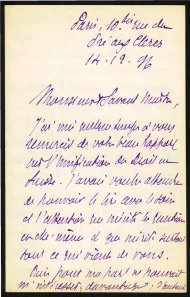 Paris, 10 bis rue du
Pré aux Clercs
14.12.96
Monsieur et Savant Maître,
J'ai mis longtemps à vous
remercier de votre beau rapport
sur l'Unification du Droit en
Suisse. J'avais voulu attendre
de pouvoir le lire avec le soin
et l'attention que mérite la question
en elle-même et que mérite surtout
tout ce qui vient de vous.
Rien pour ma part ne pouvait
m'intéresser davantage